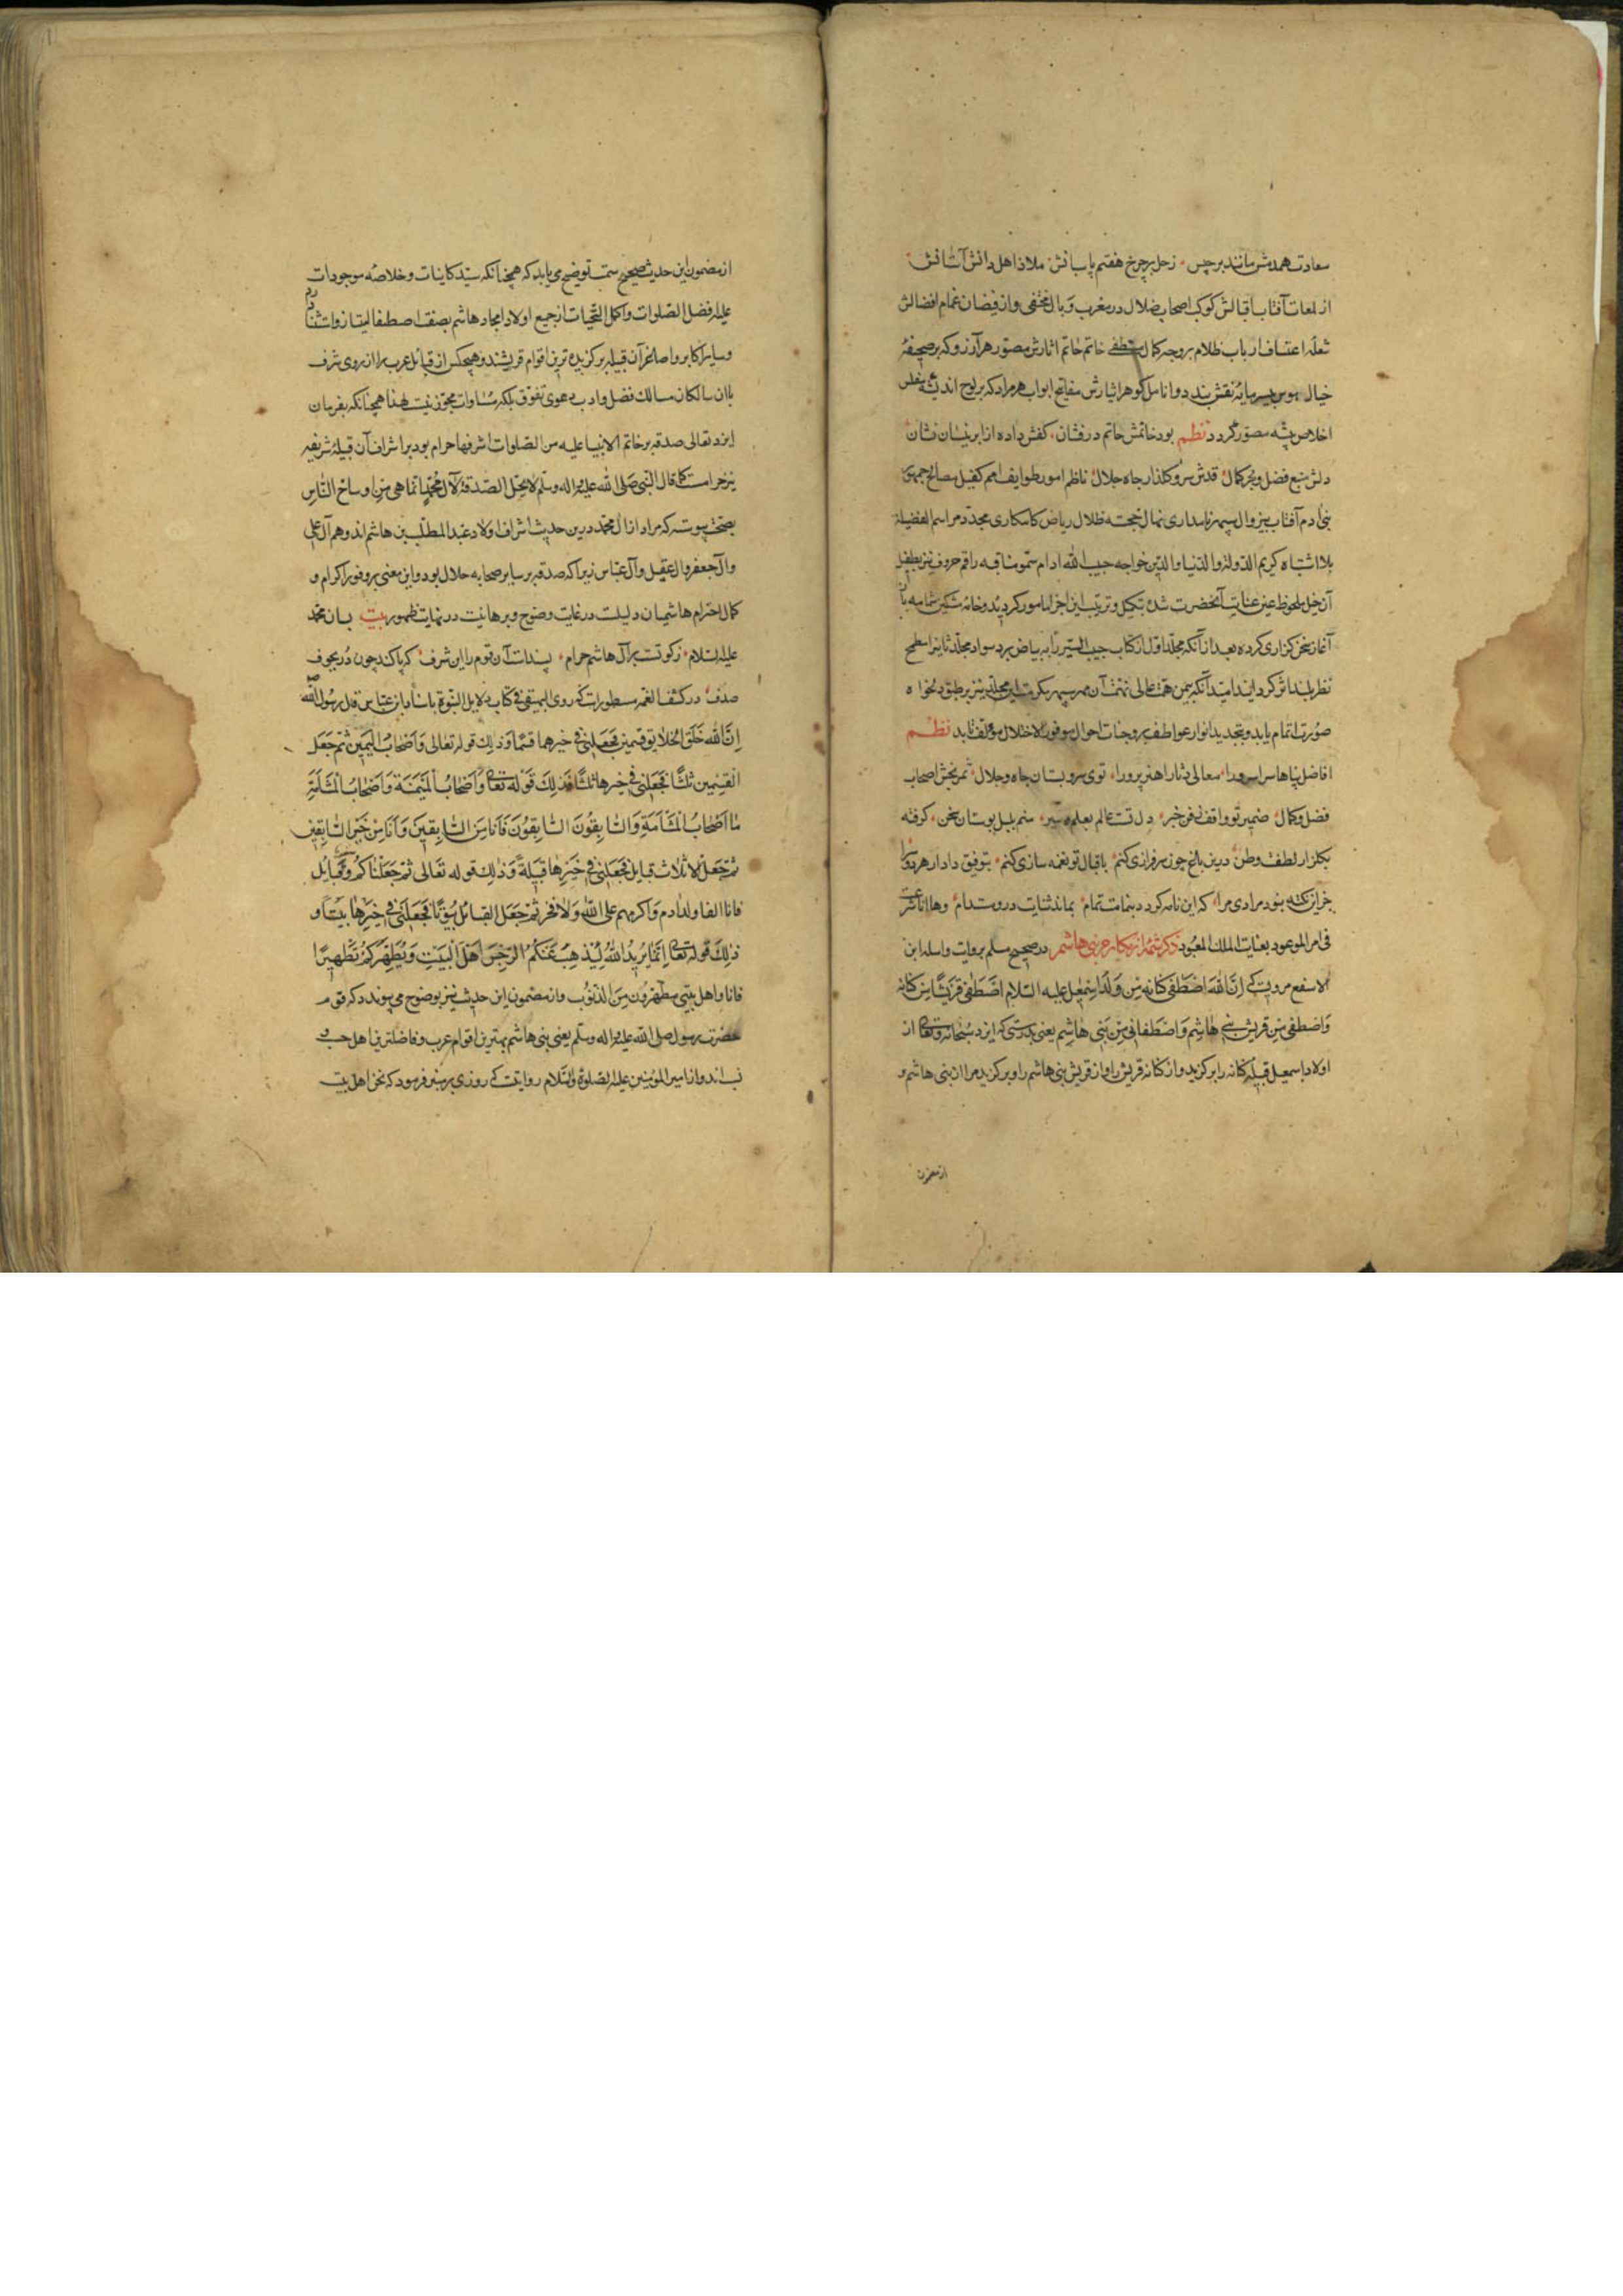 سعادت همدمش مانند برجیس زحل بر چرخ هفتم پاسبانش ملاذ اهل دانش آستانش
از لمعات آفتاب اقبالش کوکب اصحاب ضلال در مغرب وبال مختفی و از فیضان غمام افضالش
شعله اعتساف ارباب ظلام بر وجه کمال منطفی خاتم خاتم آثارش مصور هر آرزو که بر صحیفهٔ
خیال نقش بندد و انامل گوهر ایثارش مفاتیح ابواب هر مراد که بر لوح اندیشه
اخلاص پیشه مصور گردد نظم بود خاتمش حاتم درفشان کفش داده از ابر نیسان نشان
دلش منبع فضل و بحر کمال قدش سرو گلذار جاه جلال ناظم امور طوایف امم کفیل مصالح جمهور
بنی آدم آفتاب بیزوال سپهر نامداری نهال خجسته ظلال ریاض کامکاری مجدد مراسم الفضیلة
بلا اشتباه کریم الدولة والدنیا والدین خواجه حبیب الله ادام سمو مناقبه راقم حروف نیز بطفیل
آن خیل ملحوظ عین عنایت آنحضرت شده بتکمیل و ترتیب این اجزا مامور گردید و خامه مشکین شمامه
آغاز سخن گزاری کرده بعد از آنکه مجلد اول از کتاب حبیب السیر را به بیاض برد سواد مجلد ثانی را مطمح
نظر بلند اثر گردانید امید آنکه بیمن همت عالی نهمت آن مهر سپهر مکرمت این مجلد نیز بر طبق دلخواه
صورت اتمام یابد و بتجدید انوار عواطف بر وجنات احوال موفور الاختلال مؤلف تابد نظم
افاضل پناها سرا سرورا معالی دثارا هنر پرورا توی سرو بستان جاه و جلال ثمر بخش اصحاب
فضل و کمال ضمیر تو واقف ز فن خبر دلت عالم بعلم سیر منم بلبل بوستان سخن گرفته
بگلزار لطف وطن درین باغ چون سرفرازی کنم باقبال تو نغمه سازی کنم بتوفیق دادار هر دو سرا
جز این نکته نبود مرادی مرا که این نامه گردد بنامت تمام بماند ثنایت درو مستدام وها انا شرعت
فی امر الموعود بعنایت الملک المعبود ذکر شمهٔ از مکارم بنی هاشم در صحیح مسلم بروایت واسلة ابن
الاسقع مرویست که ان الله اصطفی کنانه من ولد اسمعیل علیه السلام اصطفی قریشا من کنانه
واصطفی من قریش بنی هاشم واصطفانی من بنی هاشم یعنی بدرستی که ایزد سبحانه وتعالی از
اولاد اسمعیل قبیله کنانه را برگزید و از کنانه قریش را و از قریش بنی هاشم را و برگزید مرا از بنی هاشم و
از مضمون
از مضمون این حدیث صحیح سمت توضیح می یابد که همچنانکه سید کاینات و خلاصه موجودات
علیه افضل الصلوات و اکمل التحیات از جمیع اولاد امجاد هاشم بصفت اصطفا امتیاز و استثنا دارد
و سایر اکابر و اصاغر آن قبیله برگزیده ترین اقوام قریشند و هیچکس از قبائل عرب را از روی شرف
با ان سالکان مسالک فضل و ادب دعوی تفوق بلکه مساوات مجوز نیست لهذا همچنانکه بفرمان
ایزد تعالی صدقه بر خاتم الانبیا علیه من الصلوات اشرفها حرام بود بر اشراف آن قبیله شریفه
نیز حرامست کما قال النبی صلی الله علیه و اله وسلم لا یحل الصدقة لآل محمد انما هی من اوساخ الناس
بصحت پیوسته که مراد از ال محمد درین حدیث اشراف اولاد عبد المطلب بن هاشم اند و هم آل علی
و آل جعفر و آل عقیل و آل عباس زیرا که صدقه بر سایر صحابه حلال بود و این معنی بر وفور اکرام و
کمال احترام هاشمیان دلیلست در غایت وضوح و برهانیست در نهایت ظهور بیت بسان محمد
علیه السلام زکوتست بر آل هاشم حرام پسندست آن قوم را این شرف که پاکند چون در بجوف
صدف در کشف الغمه مسطور است که روی البیهقی فی کتاب دلایل النبوة باسناد ابن عباس قال رسول الله صلعم
ان الله خلق الخلایق قسمین فجعلنی فی خیرهما قسما وذلک قوله تعالی واصحاب الیمین ثم جعل
القسمین ثلثا فجعلنی فی خیرها ثلثا فذلک قوله تعالی واصحاب المیمنة واصحاب المشأمة
ما اصحاب المشأمة والسابقون السابقون فانا من السابقین وانا من خیر السابقین
ثم جعل الاثلاث قبایل فجعلنی فی خیرها قبیلة وذلک قوله تعالی ثم جعلناکم وقبایل
فانا اتقا ولد ادم واکرمهم علی الله ولا فخر ثم جعل القبائل بیوتا فجعلنی فی خیرها بیتا و
ذلک قوله تعالی انما یرید الله لیذهب عنکم الرجس اهل البیت ویطهرکم تطهیرا
فانا واهل بیتی مطهرون من الذنوب و از مضمون این حدیث نیز بوضوح می پیوندد که قوم
حضرت رسول صلی الله علیه و اله وسلم یعنی بنی هاشم بهترین اقوام عرب و فاضلترین اهل حسب و
نسب اند و از امیر المومنین علیه الصلوة والسلام روایتست که روزی بر منبر فرمود که نحن اهل بیت